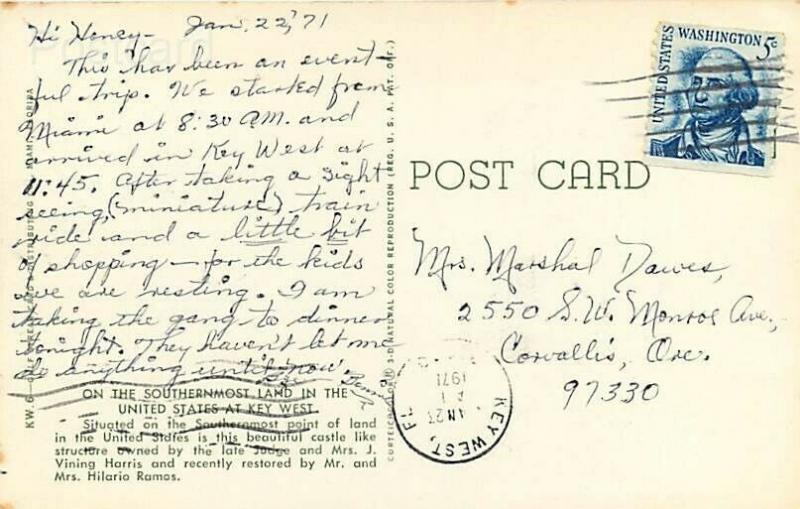 Hi Honey- Jan. 22, '71
This has been an event-
ful trip. We started from
Miami at 8:30 A.M. and
arrived in Key West at
11:45. After taking a sight
seeing (miniature) train
ride and a little bit
of shopping - for the kids
we are resting. I am
taking the gang to dinner
tonight. They haven't let me
do anything until now.
ON THE SOUTHERNMOST LAND IN THE
UNITED STATES AT KEY WEST.
Situated on the Southernmost point of land
in the United States is this beautiful castle like
structure owned by the late Judge and Mrs. J.
Vining Harris and recently restored by Mr. and
Mrs. Hilario Ramos.
3-D NATURAL COLOR REPRODUCTION (REG. U. S. A. PAT. OFF.)
POST CARD
UNITED STATES
WASHINGTON 5c
Mrs. Marshal Dawes,
2550 S.W. Monroe Ave.,
Corvallis, Ore.
97330
KEY WEST, FL
JAN 23
1971
Postcard